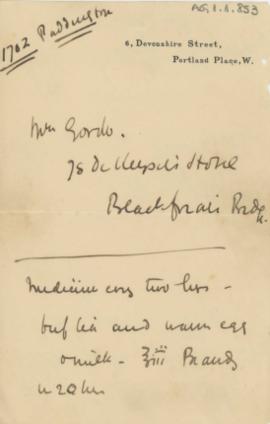 AG.1.1.853
1702 Paddington
6, Devonshire Street,
Portland Place, W.
Mrs Gordo.
78 De Keyser's Hotel
Blackfriars Bridge
Medicine every two hrs -
beef tea and warm egg
& milk - ℥iii Brandy
in 24 hrs